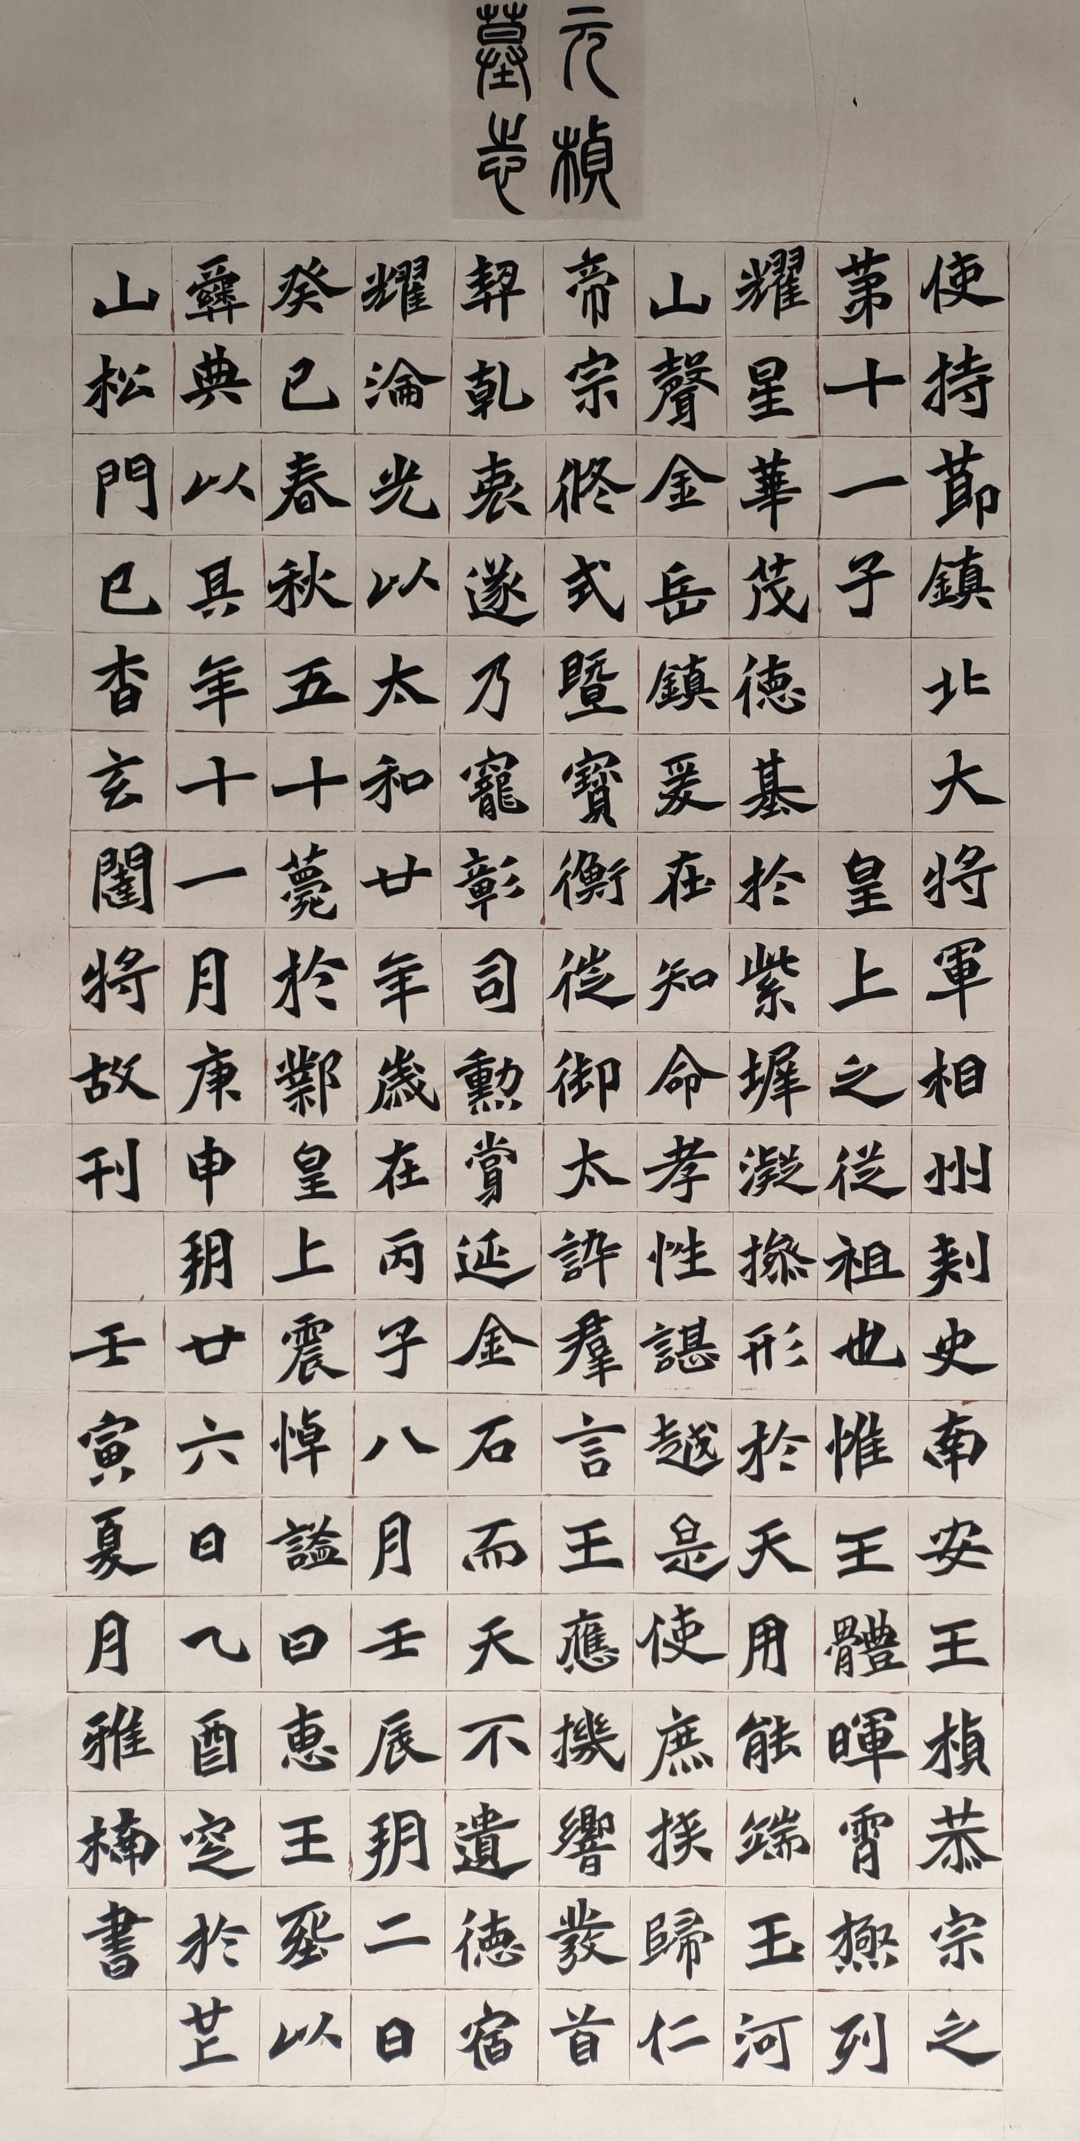 元楨
墓志
使持節鎮北大將軍相州刾史南安王楨恭宗之
苐十一子 皇上之從祖也惟王體暉霄極列
耀星華茂德基於紫墀凝操形於天用能端玉河
山聲金岳鎮爰在知命孝性諶越是使庶族歸仁
帝宗修式暨寶衡徙御太訴羣言王應機響發首
契乾衷遂乃寵彰司勳賞延金石而天不遺德宿
耀淪光以太和廿年歲在丙子八月壬辰朔二日
癸巳春秋五十薨於鄴皇上震悼謚曰惠王葬以
彝典以其年十一月庚申朔廿六日乙酉窆於芒
山松門已杳玄闈將故刊 壬寅夏月雅楠書